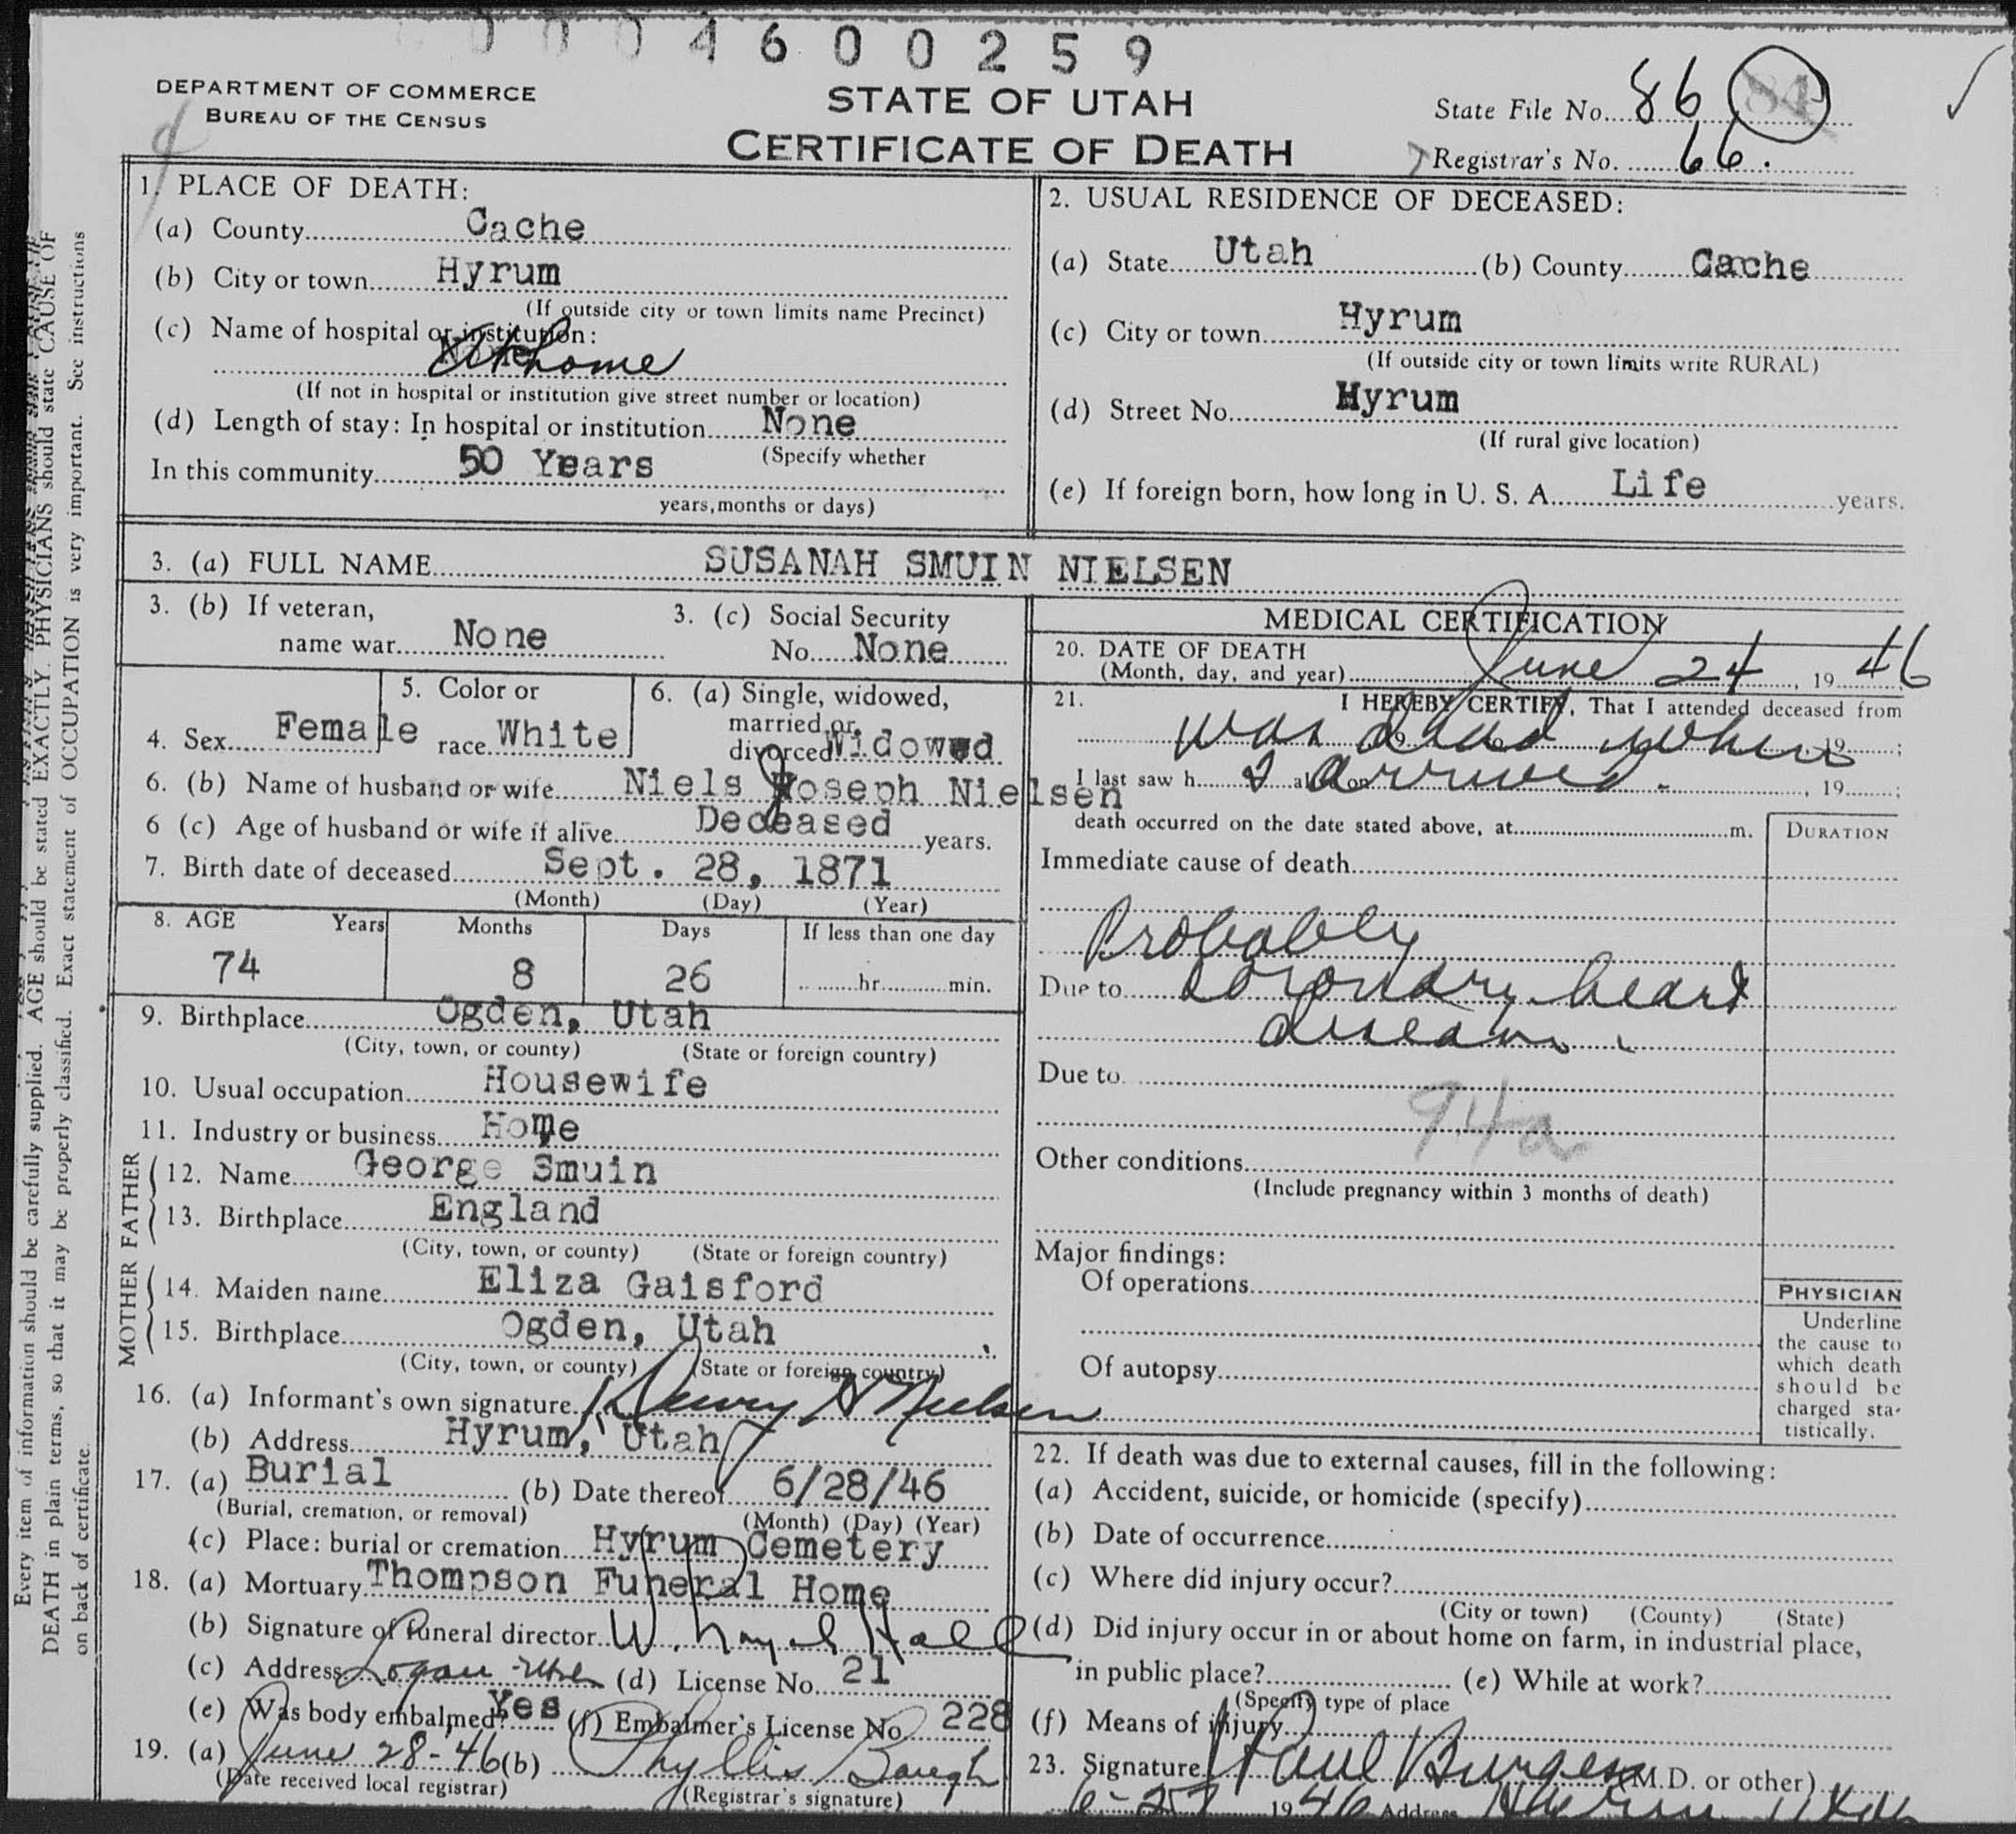 0 0 0 4 6 0 0 2 5 9
DEPARTMENT OF COMMERCE
BUREAU OF THE CENSUS
STATE OF UTAH
CERTIFICATE OF DEATH
State File No. 86 84
Registrar's No. 66.
1. PLACE OF DEATH:
(a) County Cache
(b) City or town Hyrum
(If outside city or town limits name Precinct)
(c) Name of hospital or institution:
At home
(If not in hospital or institution give street number or location)
(d) Length of stay: In hospital or institution None
(Specify whether
In this community 50 Years
years, months or days)
2. USUAL RESIDENCE OF DECEASED:
(a) State Utah (b) County Cache
(c) City or town Hyrum
(If outside city or town limits write RURAL)
(d) Street No. Hyrum
(If rural give location)
(e) If foreign born, how long in U. S. A. Life years.
3. (a) FULL NAME SUSANAH SMUIN NIELSEN
3. (b) If veteran,
name war None
3. (c) Social Security
No. None
4. Sex Female
5. Color or
race White
6. (a) Single, widowed,
married, or
divorced Widowed
6. (b) Name of husband or wife Niels Joseph Nielsen
6 (c) Age of husband or wife if alive Deceased years.
7. Birth date of deceased Sept. 28, 1871
(Month) (Day) (Year)
8. AGE Years Months Days If less than one day
74 8 26 hr. min.
9. Birthplace Ogden, Utah
(City, town, or county) (State or foreign country)
10. Usual occupation Housewife
11. Industry or business Home
FATHER
12. Name George Smuin
13. Birthplace England
(City, town, or county) (State or foreign country)
MOTHER
14. Maiden name Eliza Gaisford
15. Birthplace Ogden, Utah
(City, town, or county) (State or foreign country)
16. (a) Informant's own signature Dewey A Nielsen
(b) Address Hyrum, Utah
17. (a) Burial (b) Date thereof 6/28/46
(Burial, cremation, or removal) (Month) (Day) (Year)
(c) Place: burial or cremation Hyrum Cemetery
18. (a) Mortuary Thompson Funeral Home
(b) Signature of funeral director W. Hall
(c) Address Logan Utah (d) License No. 21
(e) Was body embalmed? Yes (f) Embalmer's License No. 228
19. (a) June 28-46 (b) Phyllis Baugh
(Date received local registrar) (Registrar's signature)
MEDICAL CERTIFICATION
20. DATE OF DEATH
(Month, day, and year) June 24, 19 46
21. I HEREBY CERTIFY, That I attended deceased from
was dead when 19 ;
I last saw h I al on arrived. , 19 ;
death occurred on the date stated above, at m.
DURATION
Immediate cause of death
Probably
Due to coronary heart
disease.
Due to
94a
Other conditions
(Include pregnancy within 3 months of death)
Major findings:
Of operations
Of autopsy
PHYSICIAN
Underline
the cause to
which death
should be
charged sta-
tistically.
22. If death was due to external causes, fill in the following:
(a) Accident, suicide, or homicide (specify)
(b) Date of occurrence
(c) Where did injury occur?
(City or town) (County) (State)
(d) Did injury occur in or about home on farm, in industrial place,
in public place? (e) While at work?
(Specify type of place
(f) Means of injury
23. Signature Paul Burgess (M.D. or other)
6-27 1946 Address Hyrum Utah
Every item of information should be carefully supplied. AGE should be stated EXACTLY. PHYSICIANS should state CAUSE OF
DEATH in plain terms, so that it may be properly classified. Exact statement of OCCUPATION is very important. See instructions
on back of certificate.